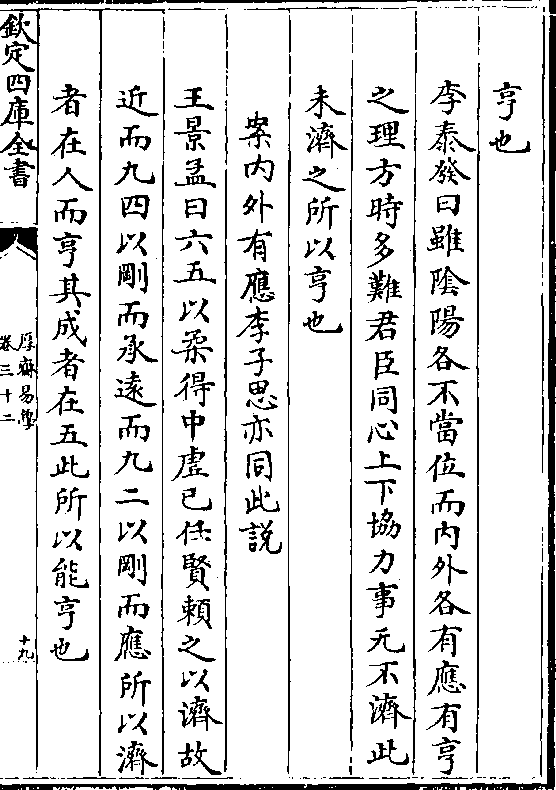 亨也
李泰發曰雖陰陽各不當位而内外各有應有亨
之理方時多難君臣同心上下協力事无不濟此
未濟之所以亨也
案内外有應李子思亦同此說
王景孟曰六五以柔得中虚已任賢賴之以濟故
近而九四以剛而承遠而九二以剛而應所以濟
者在人而亨其成者在五此所以能亨也
欽定四庫全書
厚齋易學
卷三十二
十九